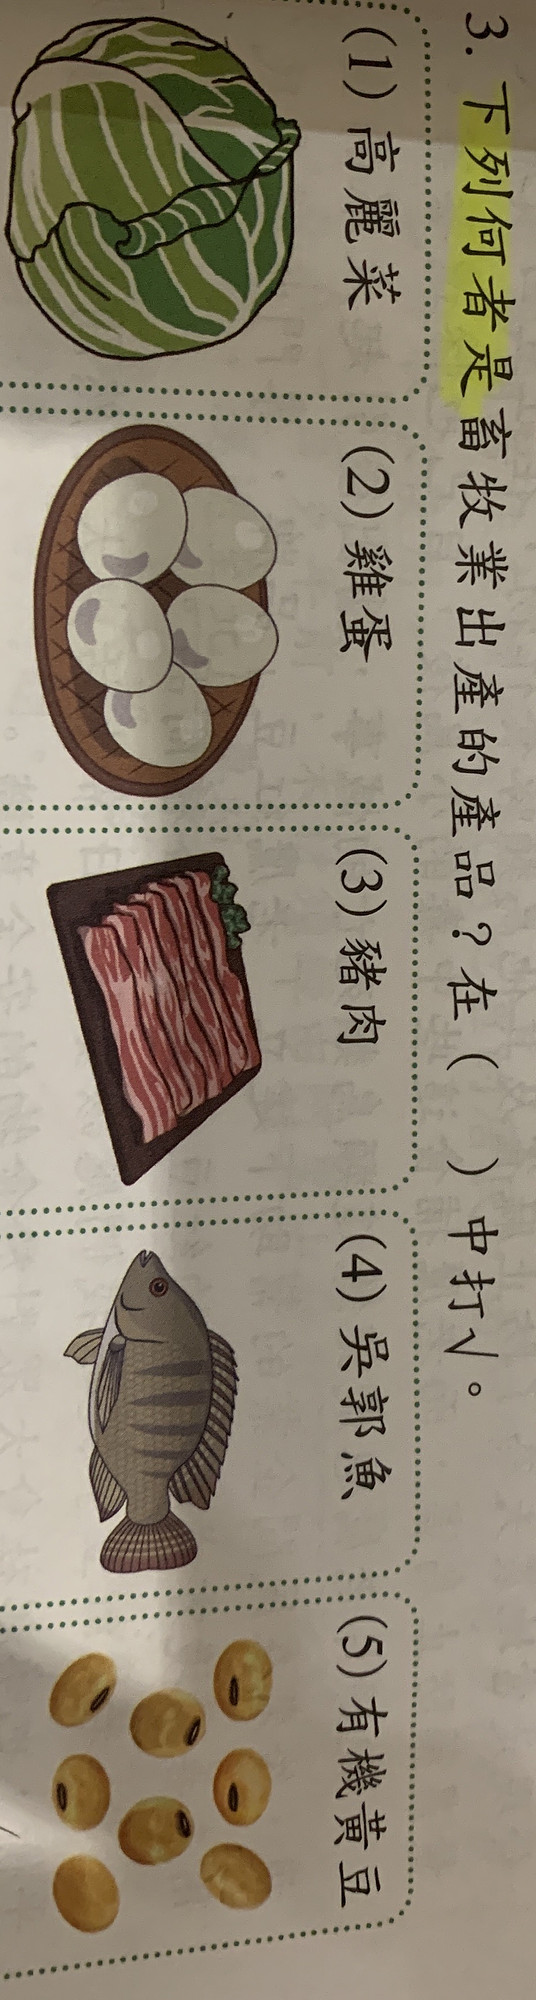 3. 下列何者是畜牧業出產的產品？在（　）中打√。
(1)高麗菜
(2)雞蛋
(3)豬肉
(4)吳郭魚
(5)有機黃豆